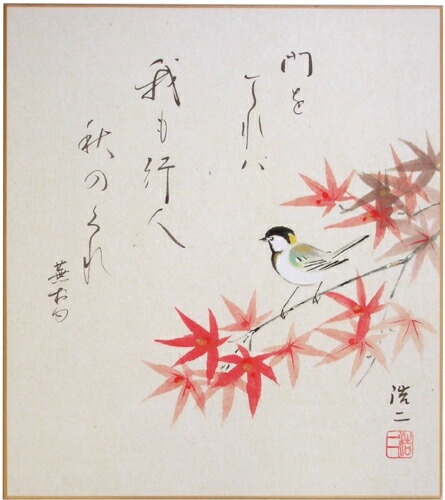 門を
これハ
我も行人
秋のくれ
蕪村句
浩二
浩二